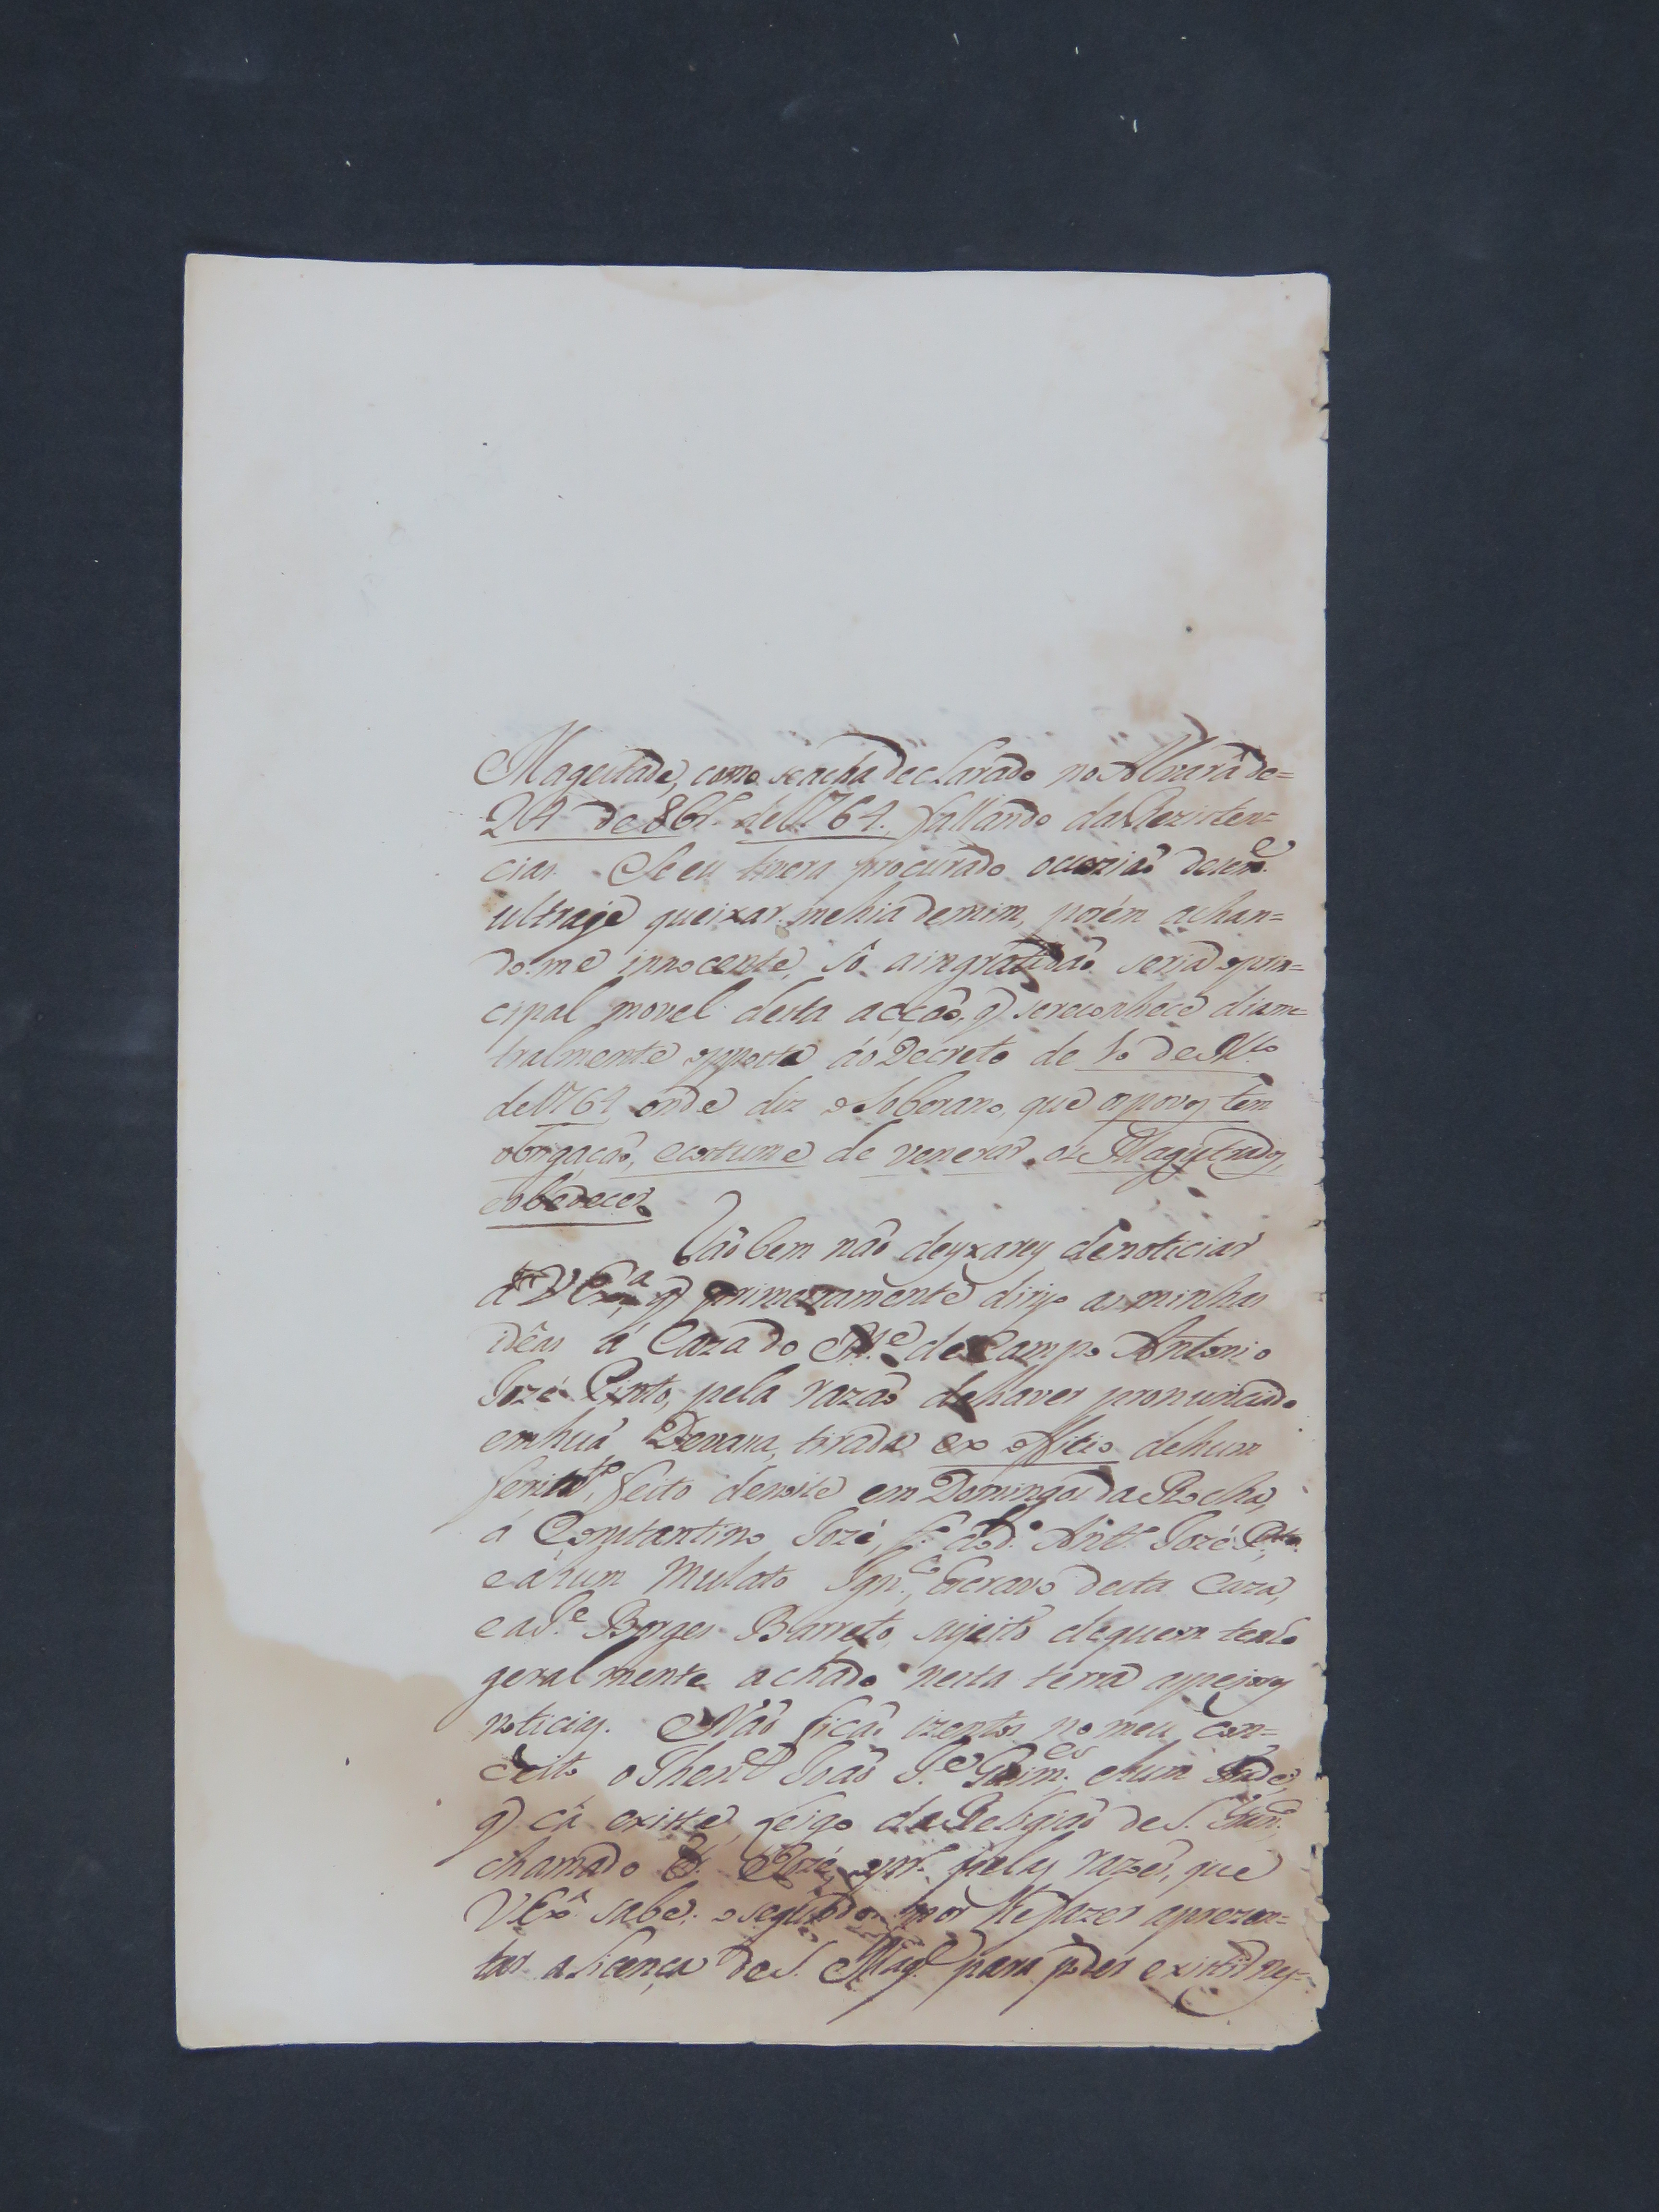 Magestade, como se acha declarado no Alvará de=
24 de 8br.º de 1764. fallando das Rezisten=
cias. Se eu tivera procurado ocaziaõ de sem.e
ultraje queixar mehia demim, porém achan=
dome innocente, só a ingratidaõ seria o prin=
cipal movel desta acçaõ, q̃ se reconhece diame
tralmente opposta aó Decreto de 10 de M.ço
de 1764 onde diz o Soberano, que os povos tem
obrigaçaõ, e costume de venerar os Magistrados,
e obedecer.
Taõ bem naõ deyxarey de noticiar
a V Ex.a q̃ primeiramente dirijo as minhas
idéas á Caza do M.e de Campo Antonio
Jozé Pinto, pela razaõ de haver pronunciado
em huã Devaça, tirada ex officio de hum
ferim.to, feito de noite em Domingos da Rocha,
á Constantino Jozé, f.º do d.º Ant.º Jozé P.to
e á hum Mulato Ign.co, Escravo desta Caza,
e a J.e Borges Barreto, sujeito de quem tenho
geralmente achado nesta terra as peyores
noticias. Naõ ficaõ izentos no meu con=
ceito o Then.e Joaõ J.e Guim.es e hum Frade,
q̃ cá existe, leigo da Religiaõ de S. Fran.co
chamado Fr. Jozé, o pr.º pelas razoẽs, que
V Ex.a sabe; o segundo por lhe fazer aprezen=
tar a licença de S. Mag.e para poder existir nes=